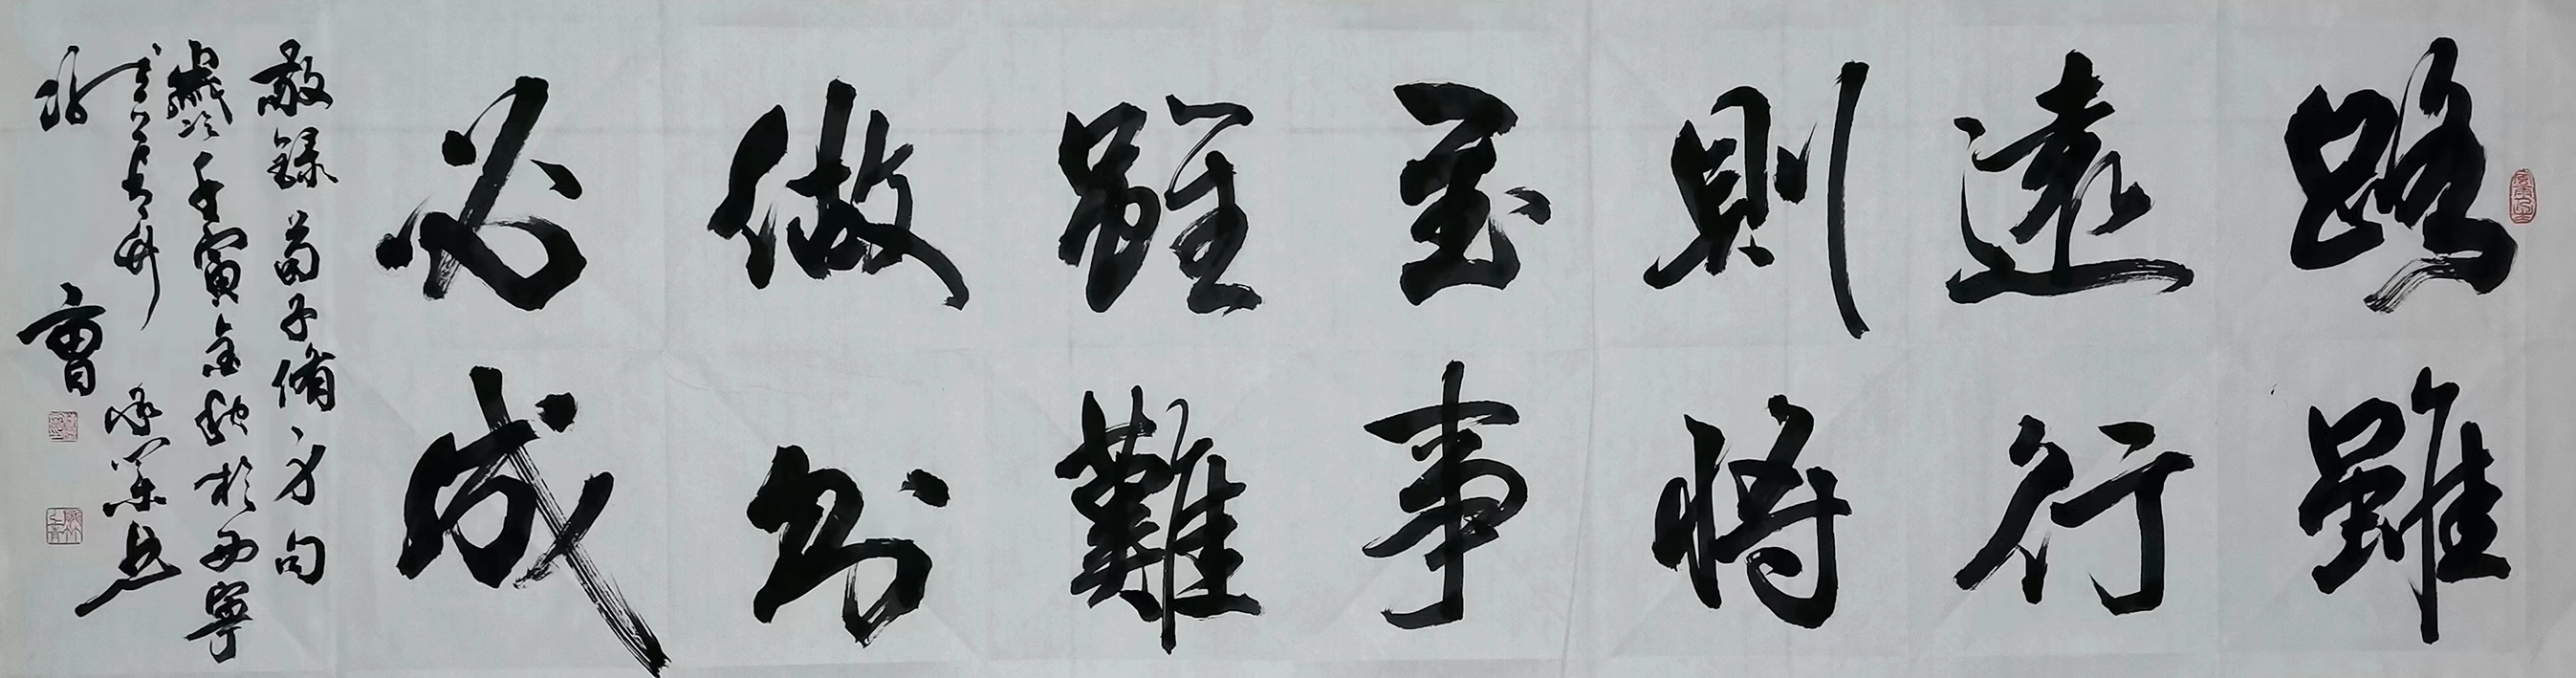 路雖
遠行
則將
至事
雖難
做則
必成
敬録荀子脩身句
歲次壬寅金秋於西寧
曹